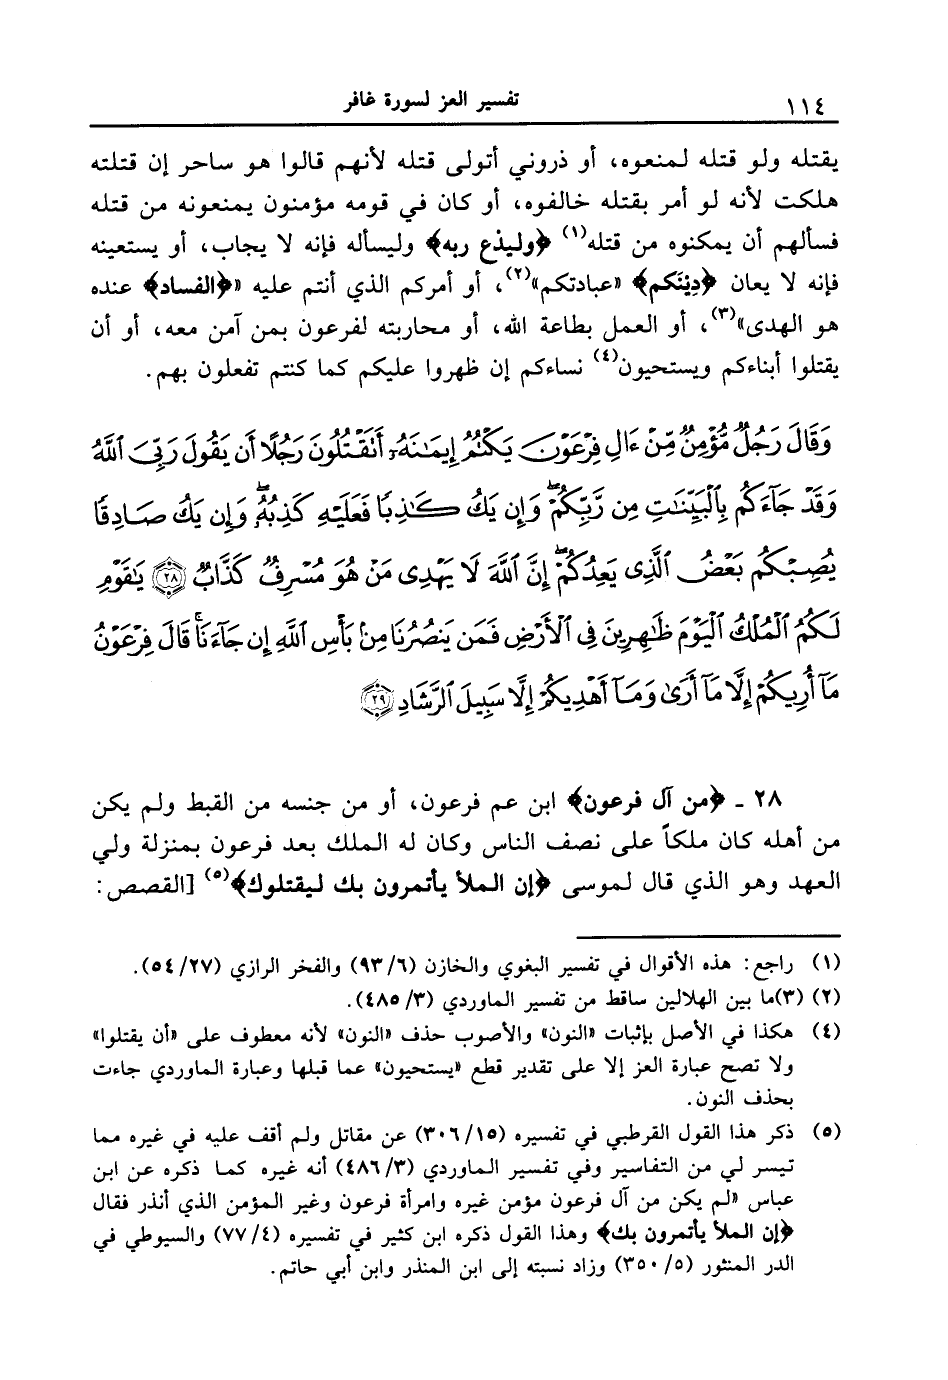 ١١٤ تفسير العز لسورة غافر
يقتله ولو قتله لمنعوه، أو ذروني أتولى قتله لأنهم قالوا هو ساحر إن قتلته
هلكت لأنه لو أمر بقتله خالفوه، أو كان في قومه مؤمنون يمنعونه من قتله
فسألهم أن يمكنوه من قتله(١) ﴿وليدْع ربه﴾ وليسأله فإنه لا يجاب، أو يستعينه
فإنه لا يعان ﴿دِيْنَكم﴾ «عبادتكم»(٢)، أو أمركم الذي أنتم عليه «﴿الفساد﴾ عنده
هو الهدى»(٣)، أو العمل بطاعة الله، أو محاربته لفرعون بمن آمن معه، أو أن
يقتلوا أبناءكم ويستحيون(٤) نساءكم إن ظهروا عليكم كما كنتم تفعلون بهم.
وَقَالَ رَجُلٌ مُّؤْمِنٌ مِّنْ ءَالِ فِرْعَوْنَ يَكْتُمُ إِيمَٰنَهُۥٓ أَتَقْتُلُونَ رَجُلًا أَن يَقُولَ رَبِّىَ ٱللَّهُ
وَقَدْ جَآءَكُم بِٱلْبَيِّنَٰتِ مِن رَّبِّكُمْ ۖ وَإِن يَكُ كَٰذِبًا فَعَلَيْهِ كَذِبُهُۥ ۖ وَإِن يَكُ صَادِقًا
يُصِبْكُم بَعْضُ ٱلَّذِى يَعِدُكُمْ ۖ إِنَّ ٱللَّهَ لَا يَهْدِى مَنْ هُوَ مُسْرِفٌ كَذَّابٌ ٢٨ يَٰقَوْمِ
لَكُمُ ٱلْمُلْكُ ٱلْيَوْمَ ظَٰهِرِينَ فِى ٱلْأَرْضِ فَمَن يَنصُرُنَا مِنۢ بَأْسِ ٱللَّهِ إِن جَآءَنَا ۚ قَالَ فِرْعَوْنُ
مَآ أُرِيكُمْ إِلَّا مَآ أَرَىٰ وَمَآ أَهْدِيكُمْ إِلَّا سَبِيلَ ٱلرَّشَادِ ٢٩
٢٨ ـ ﴿من آل فرعون﴾ ابن عم فرعون، أو من جنسه من القبط ولم يكن
من أهله كان ملكاً على نصف الناس وكان له الملك بعد فرعون بمنزلة ولي
العهد وهو الذي قال لموسى ﴿إن الملأ يأتمرون بك ليقتلوك﴾(٥) [القصص:
(١) راجع: هذه الأقوال في تفسير البغوي والخازن (٩٣/٦) والفخر الرازي (٥٤/٢٧).
(٢) (٣)ما بين الهلالين ساقط من تفسير الماوردي (٤٨٥/٣).
(٤) هكذا في الأصل بإثبات «النون» والأصوب حذف «النون» لأنه معطوف على «أن يقتلوا»
ولا تصح عبارة العز إلا على تقدير قطع «يستحيون» عما قبلها وعبارة الماوردي جاءت
بحذف النون.
(٥) ذكر هذا القول القرطبي في تفسيره (٣٠٦/١٥) عن مقاتل ولم أقف عليه في غيره مما
تيسر لي من التفاسير وفي تفسير الماوردي (٤٨٦/٣) أنه غيره كما ذكره عن ابن
عباس «لم يكن من آل فرعون مؤمن غيره وامرأة فرعون وغير المؤمن الذي أنذر فقال
﴿إن الملأ يأتمرون بك﴾ وهذا القول ذكره ابن كثير في تفسيره (٧٧/٤) والسيوطي في
الدر المنثور (٣٥٠/٥) وزاد نسبته إلى ابن المنذر وابن أبي حاتم.